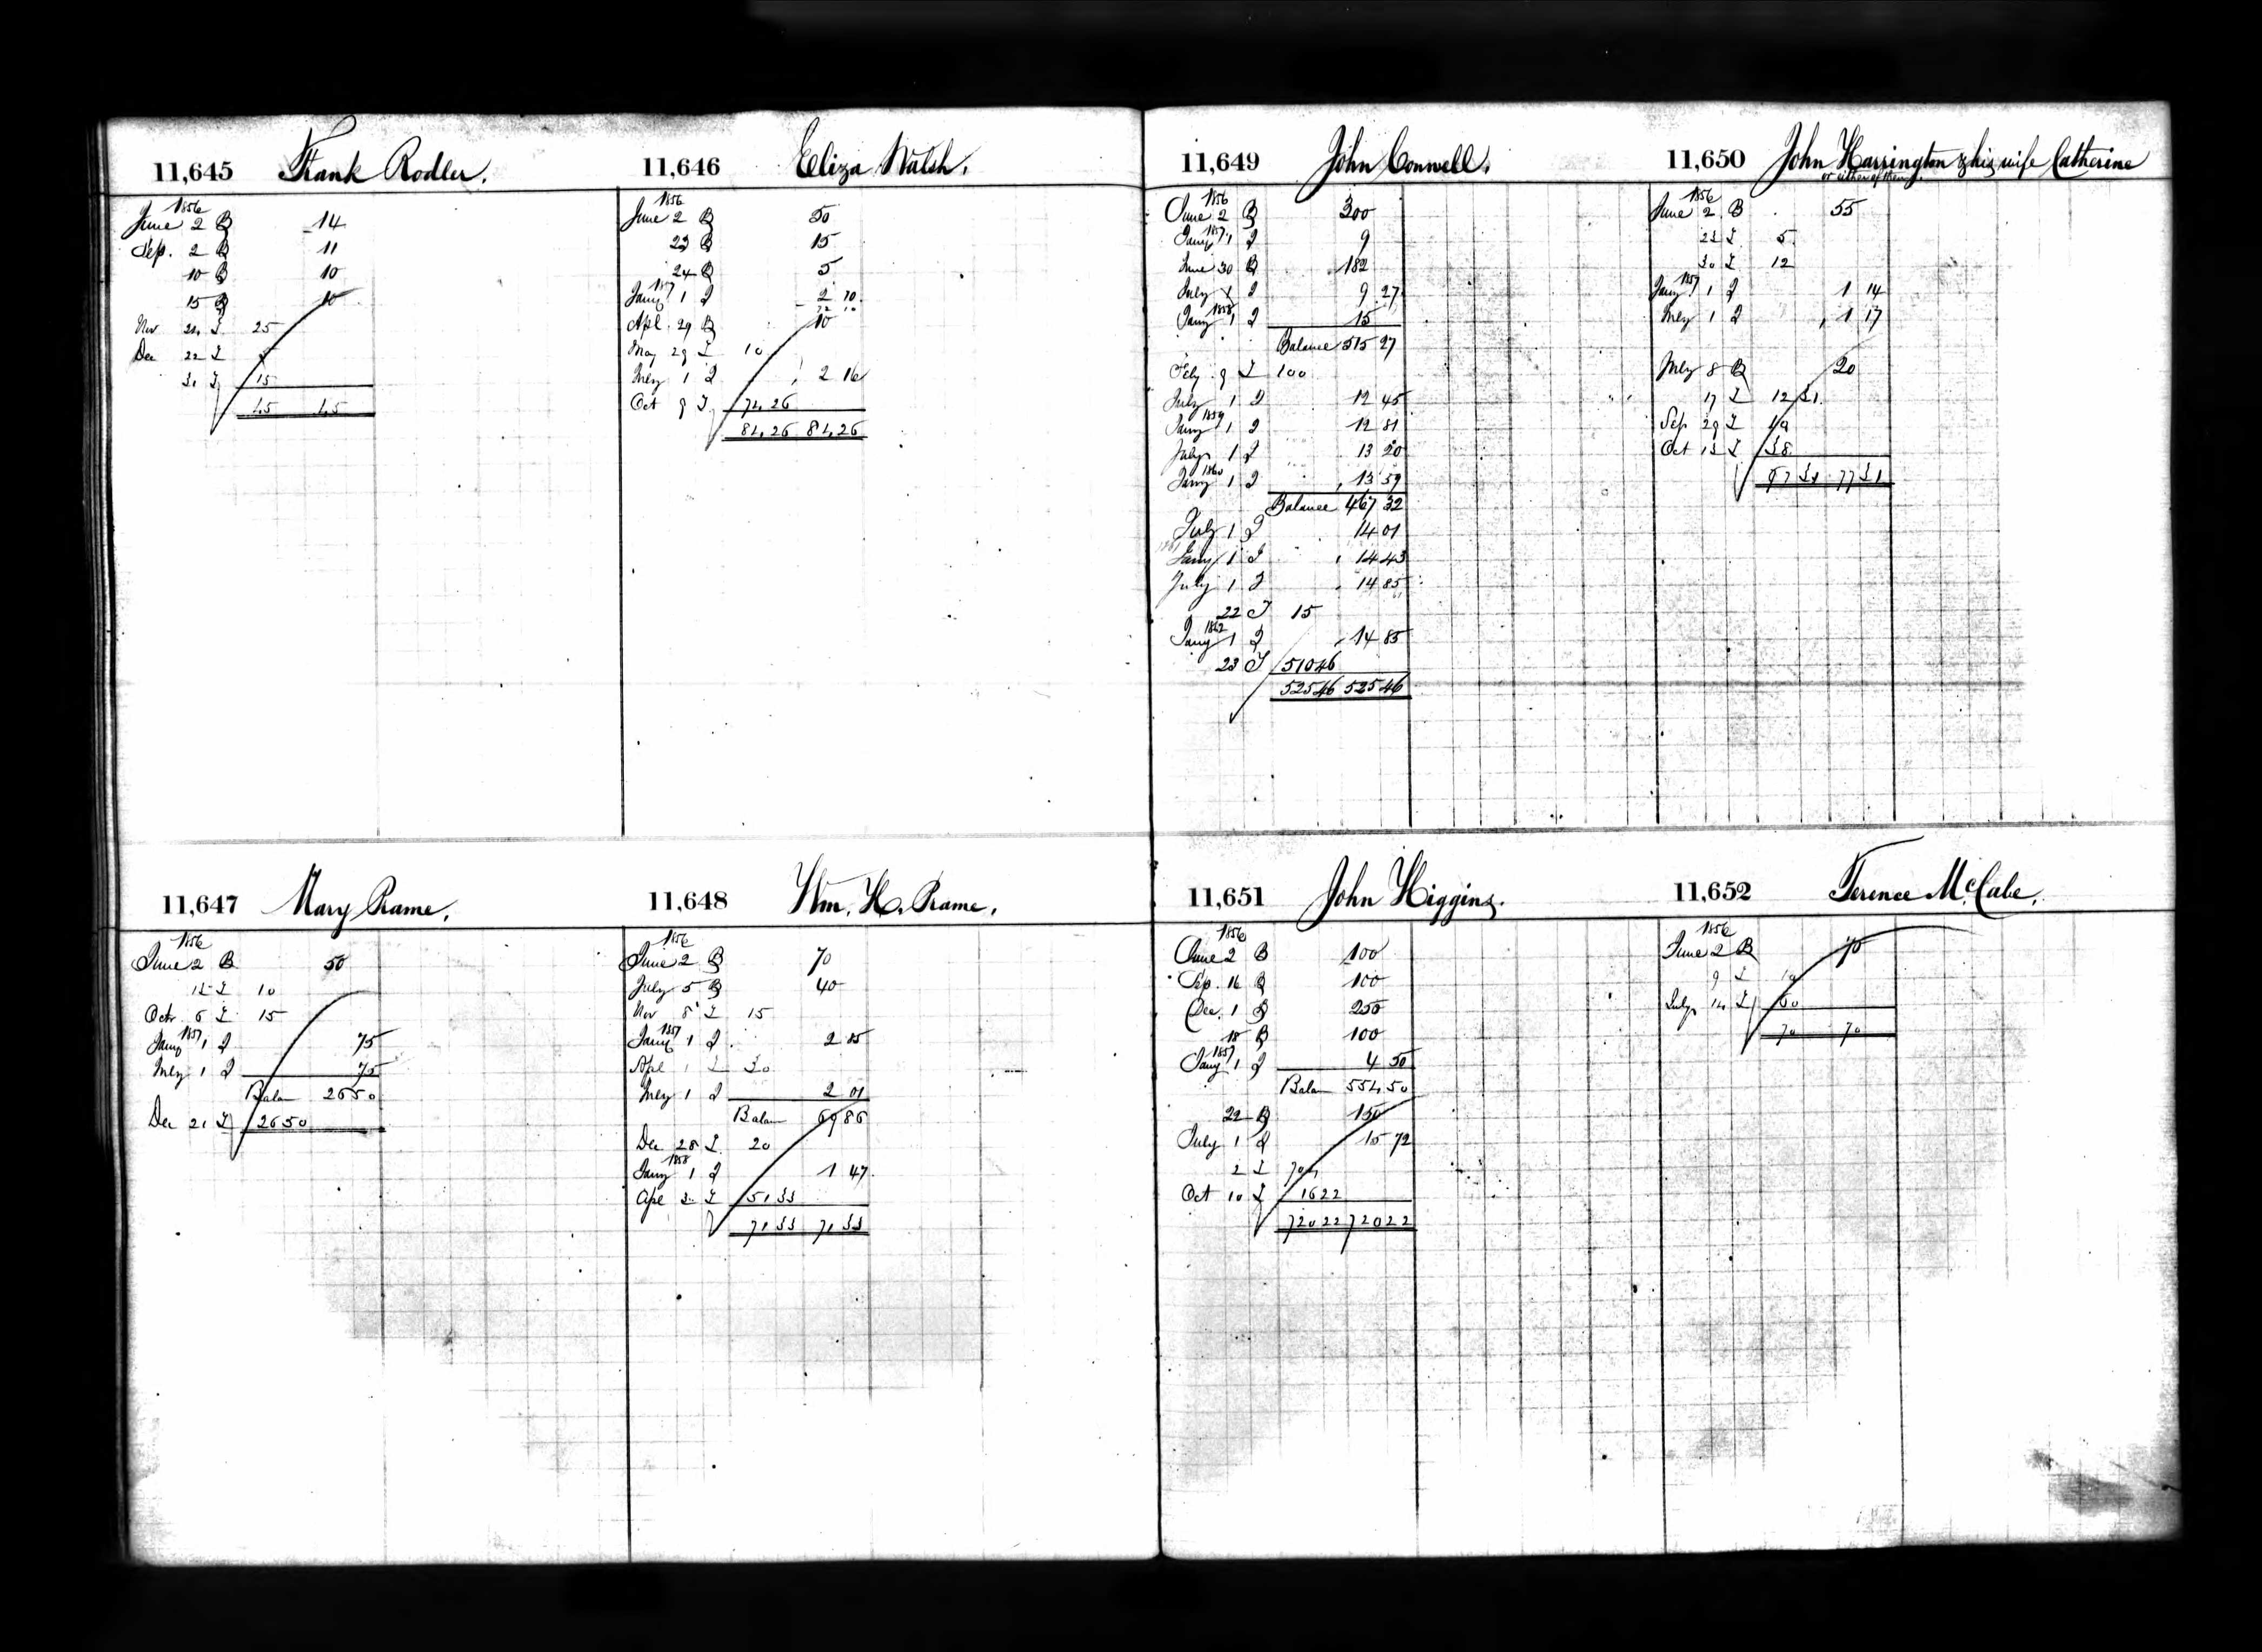 11,645 Frank Rodler.
1856
June 2 B 14
Sep. 2 B 11
10 B 10
15 B 10
Nov 24 T 25
Dec 22 T 5
31 T 15
45 45
11,646 Eliza Walsh.
1856
June 2 B 50
23 B 15
24 B 5
1857
Jany 1 I 2 10
72 10
Apl. 29 B 10
May 29 T 10
July 1 I 2 16
Oct 9 T 74,26
84,26 84,26
11,647 Mary Rame.
1856
June 2 B 50
12 T 10
Octr 6 T 15
1857
Jany 1 I 75
July 1 I 75
Balan 26 50
Dec 21 T 26 50
11,648 Wm. H. Rame.
1856
June 2 B 70
July 5 B 40
Nov 8 T 15
1857
Jany 1 I 2 85
Apl 1 T 30
July 1 I 2 01
Balan 69 86
Dec 28 T 20
1858
Jany 1 I 1 47
Apl 3 T 51 33
71 33 71 33
11,649 John Connell.
1856
June 2 B 300
1857
Jany 1 I 9
June 30 B 182
July 1 I 9 27
1858
Jany 1 I 15
Balance 515 27
Feby 9 T 100
July 1 I 12 45
1859
Jany 1 I 12 81
July 1 I 13 20
1860
Jany 1 I 13 59
Balance 467 32
July 1 I 14 01
1861
Jany 1 I 14 43
July 1 I 14 85
22 T 15
1862
Jany 1 I 14 85
23 T 510 46
525 46 525 46
11,650 John Harrington & his wife Catherine
or either of them.
1856
June 2 B 55
23 T 5
30 T 12
1857
Jany 1 I 1 14
July 1 I 1 17
July 8 B 20
17 T 12 31
Sep 29 T 10
Oct 13 T 38
77 31 77 31
11,651 John Higgins.
1856
June 2 B 100
Sep. 16 B 100
Dec. 1 B 250
18 B 100
1857
Jany 1 I 4 50
Balan 554,50
22 B 150
July 1 I 15 72
2 T 704
Oct 10 T 16 22
720 22 720 22
11,652 Terence McCabe.
1856
June 2 B 70
9 T 10
July 14 T 60
70 70